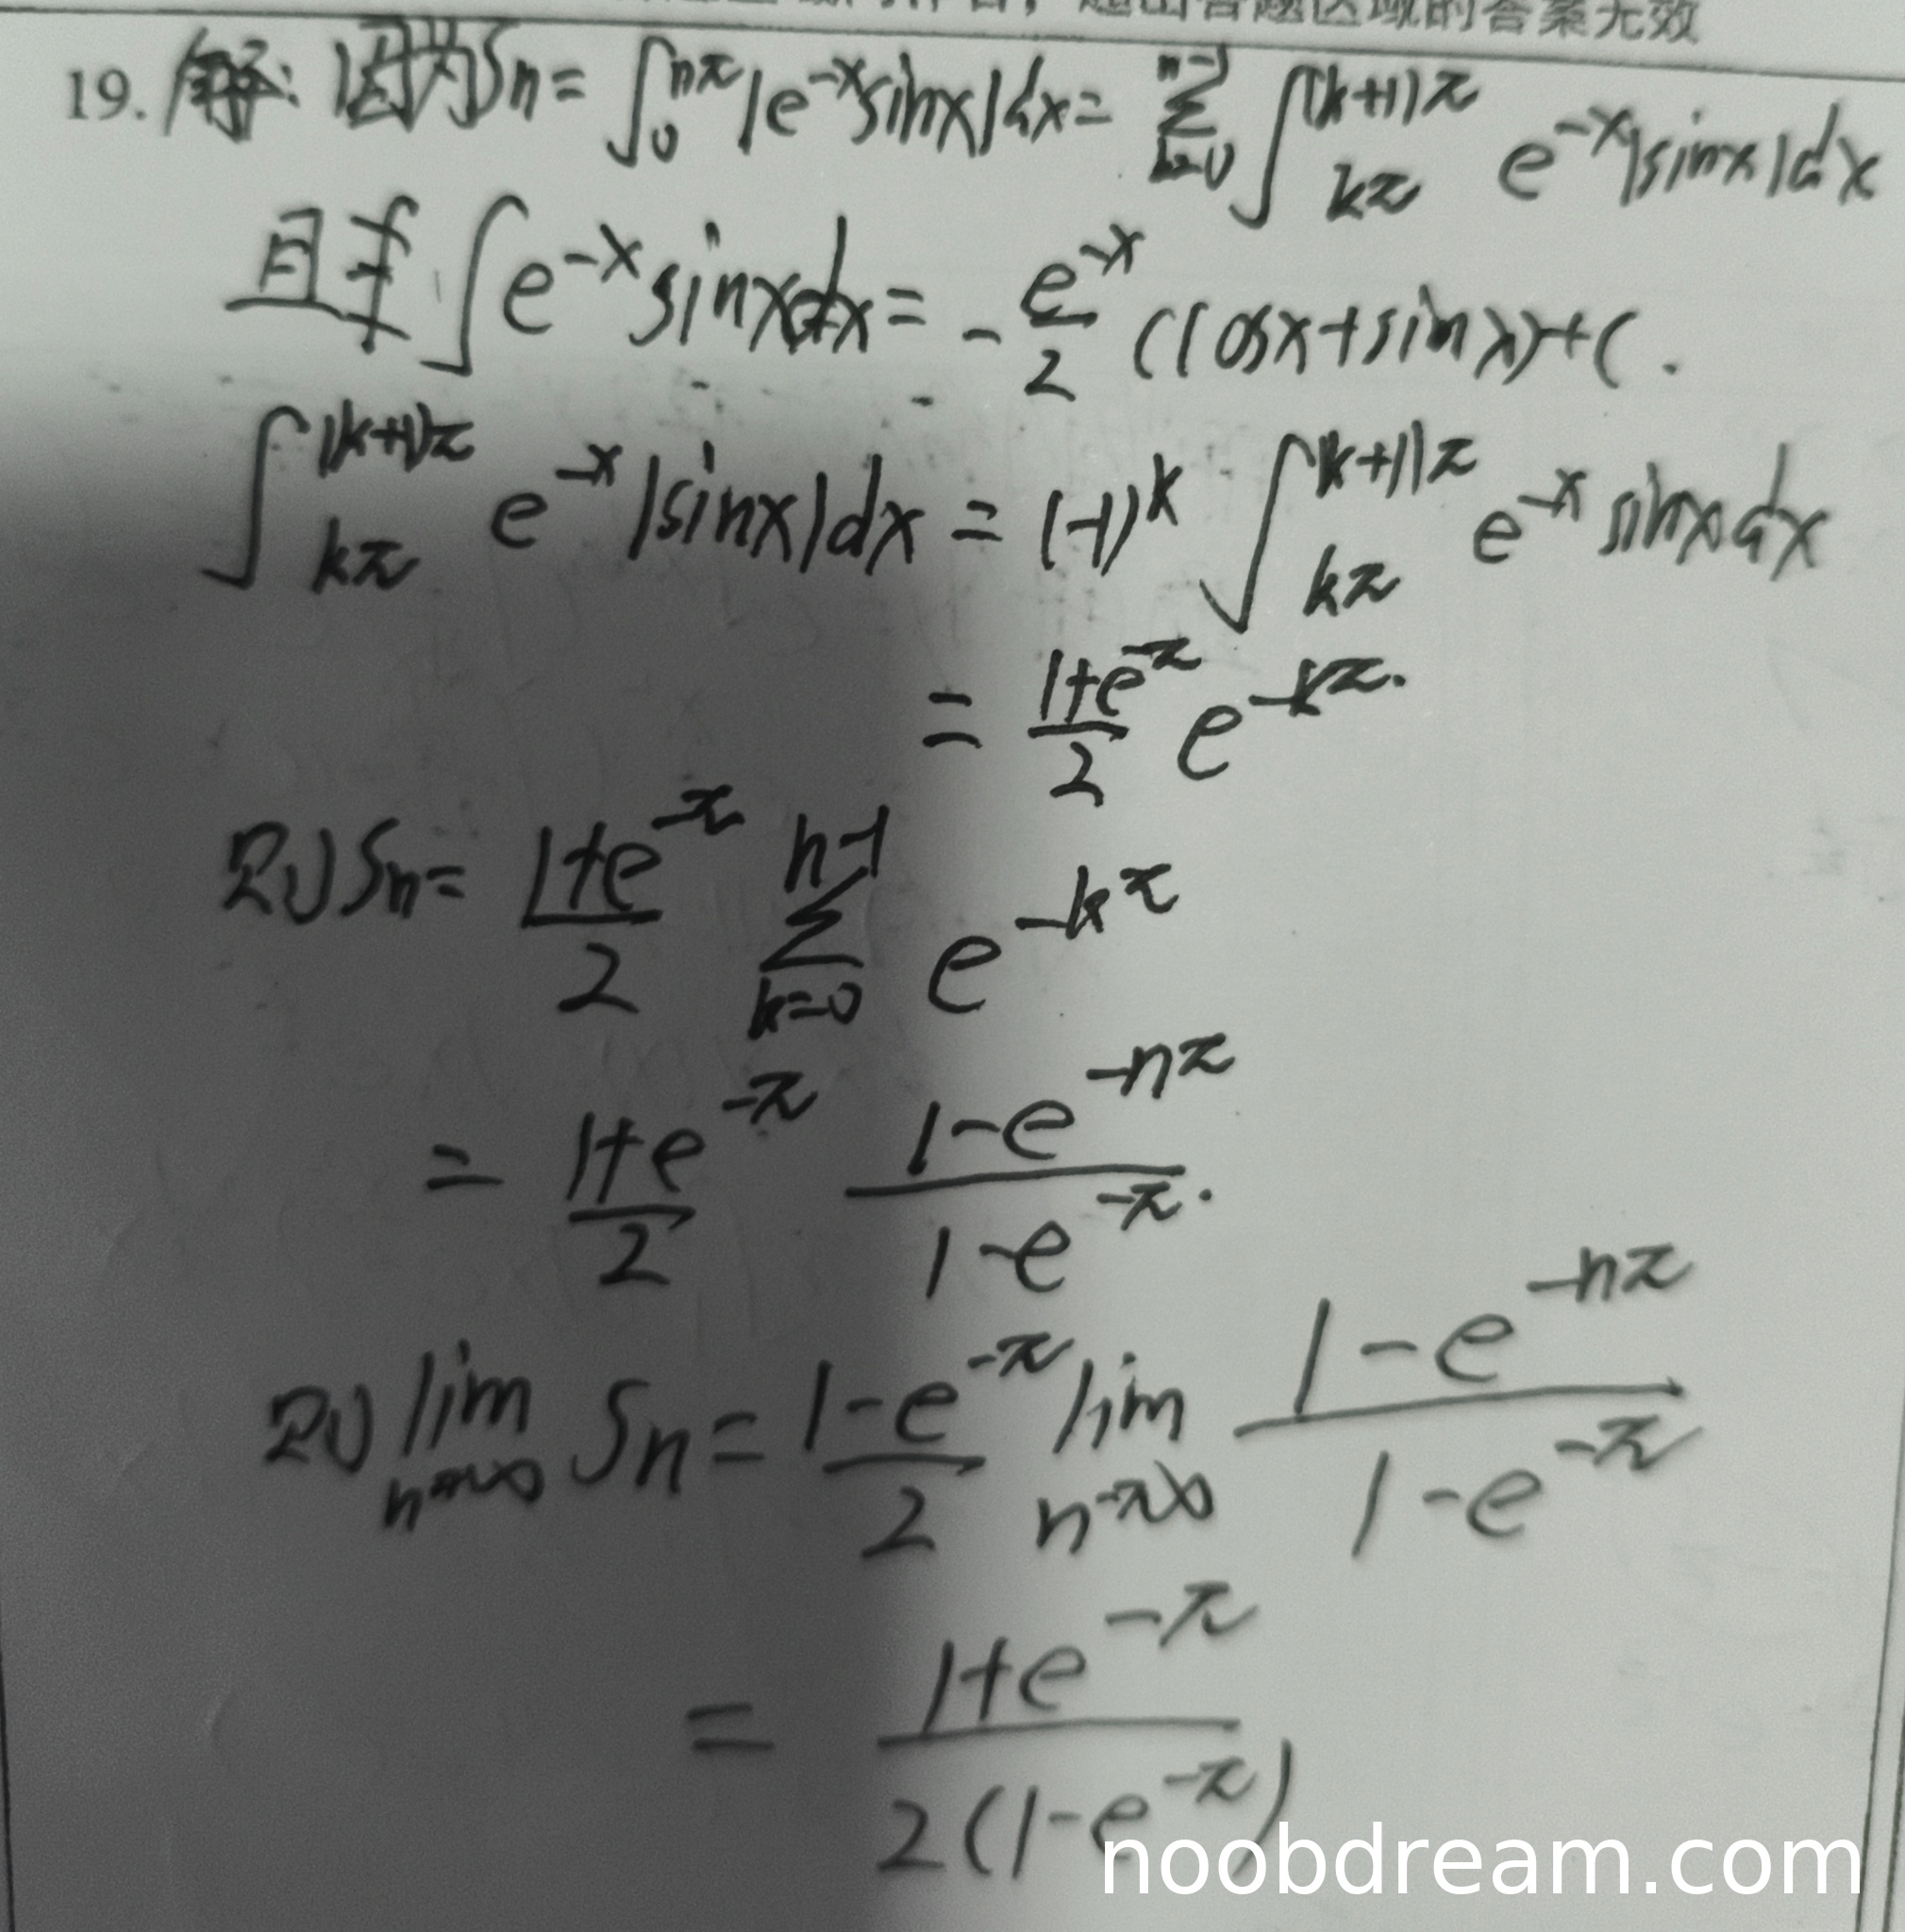 超出答题区域的答案无效
19. 解: 因为 Sn = ∫_0^{nπ} |e^{-x} sinx| dx = ∑_{k=0}^{n-1} ∫_{kπ}^{(k+1)π} e^{-x} |sinx| dx
且 ∫ e^{-x} sinx dx = - e^{-x}/2 (cosx + sinx) + C.
∫_{kπ}^{(k+1)π} e^{-x} |sinx| dx = (-1)^k ∫_{kπ}^{(k+1)π} e^{-x} sinx dx
= (1+e^{-π})/2 e^{-kπ}.
则 Sn = (1+e^{-π})/2 ∑_{k=0}^{n-1} e^{-kπ}
= (1+e^{-π})/2 (1-e^{-nπ})/(1-e^{-π}).
则 lim_{n→∞} Sn = (1-e^{-π})/2 lim_{n→∞} (1-e^{-nπ})/(1-e^{-π})
= (1+e^{-π})/(2(1-e^{-π}))
noobdream.com